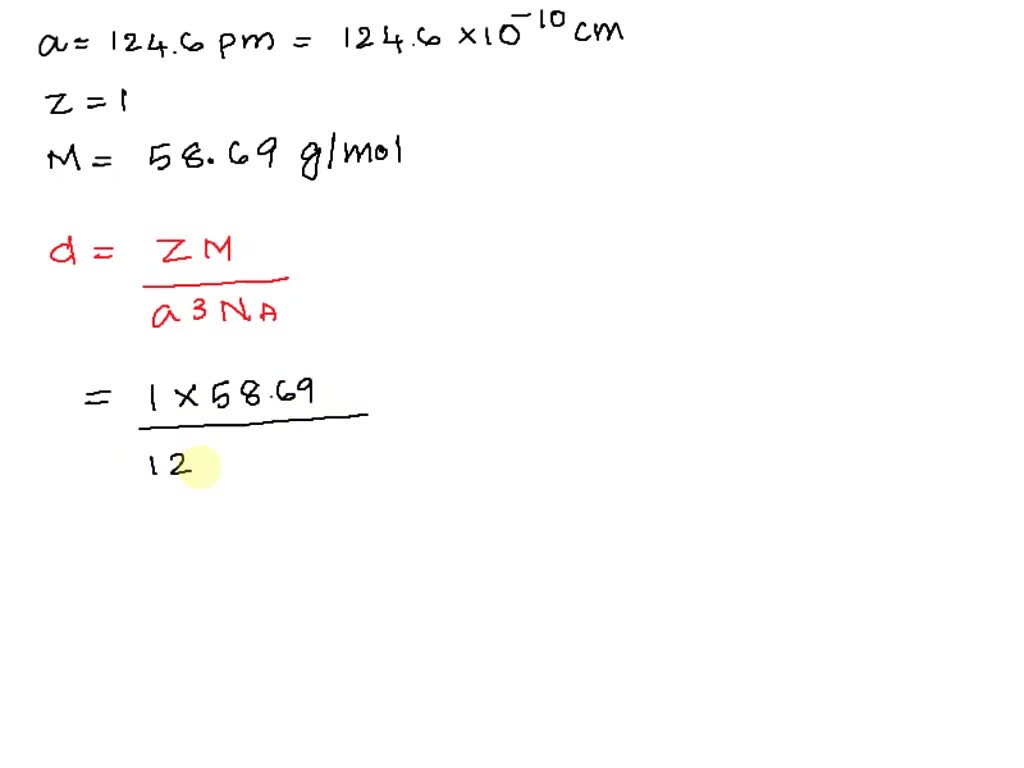 a = 124.6 pm = 124.6 ×10⁻¹⁰ cm
Z = 1
M = 58.69 g/mol
d = Z M
a 3 N A
= 1 × 58.69
12